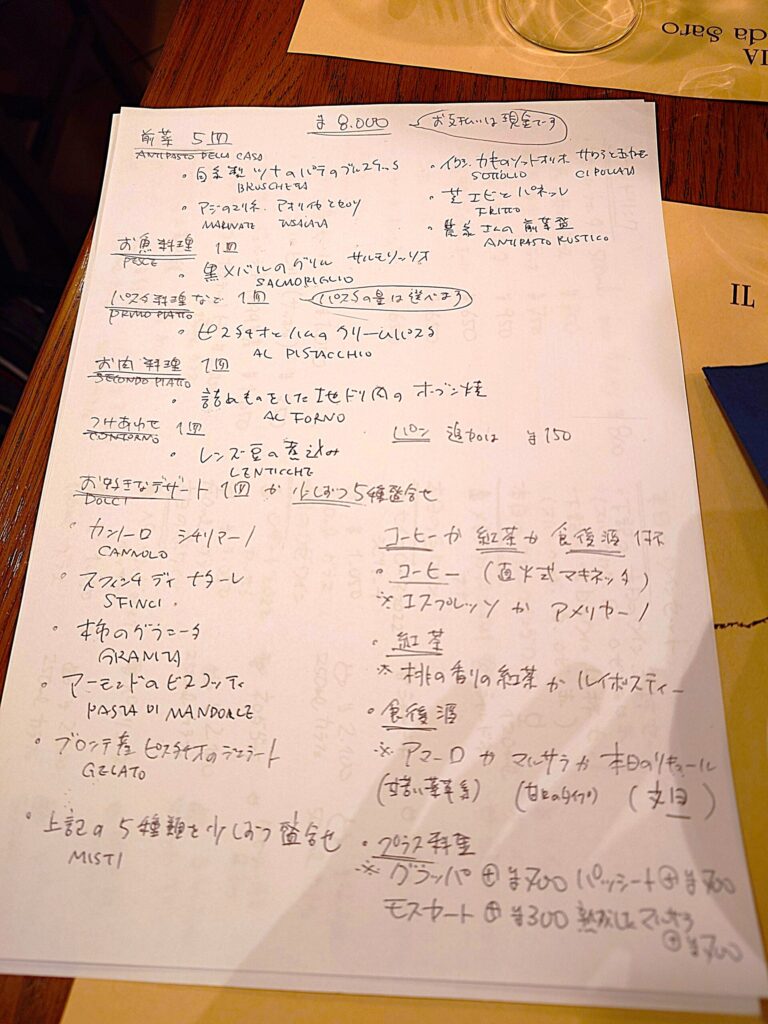 ¥8.000 お支払いは現金です
前菜 5皿
ANTIPASTO DELLA CASA
・自家製 ツナのパテのブルスケッタ
BRUSCHETTA
・アジのマリネ、アオリイカとセロリ
MARINATE INSALATA
・イクラ、カキのソットオーリオ
SOTTOLIO CIPOLLATA
・芝エビとパネッレ
FRITTO
・農家さんの前菜盛
ANTIPASTO RUSTICO
お魚料理 1皿
PESCE
・黒メバルのグリル サルモリッリオ
SALMORIGLIO
パスタ料理など 1皿 パスタの量は選べます
PRIMO PIATTO
・ピスタチオとハムのクリームパスタ
AL PISTACCHIO
お肉料理 1皿
SECONDO PIATTO
・詰めものをした地ドリ肉のオーブン焼
AL FORNO
つけあわせ 1皿
CONTORNO
・レンズ豆の煮込み
LENTICCHIE
パン 追加は ¥150
お好きなデザート 1皿 か 少しずつ5種盛合せ
DOLCI
・カンノーロ シチリアーノ
CANNOLO
・スフィンチ ディ ナターレ
SFINCI
・柿のグラニータ
GRANITA
・アーモンドのビスコッティ
PASTA DI MANDORLE
・ブロンテ産 ピスタチオのジェラート
GELATO
・上記の5種類を少しずつ盛合せ
MISTI
コーヒーか 紅茶か 食後酒 付
・コーヒー (直火式マキネッタ)
※エスプレッソ か アメリカーノ
・紅茶
※桃の香りの紅茶か ルイボスティー
・食後酒
※アマーロ か マルサラ か 本日のリキュール
(苦い薬草系) (甘口のタイプ)
・プラス料金
※グラッパ ⊕¥700 パッシート⊕¥700
モスカート ⊕¥300 熟成したマルサラ
⊕¥700
IA
da Saro
IL